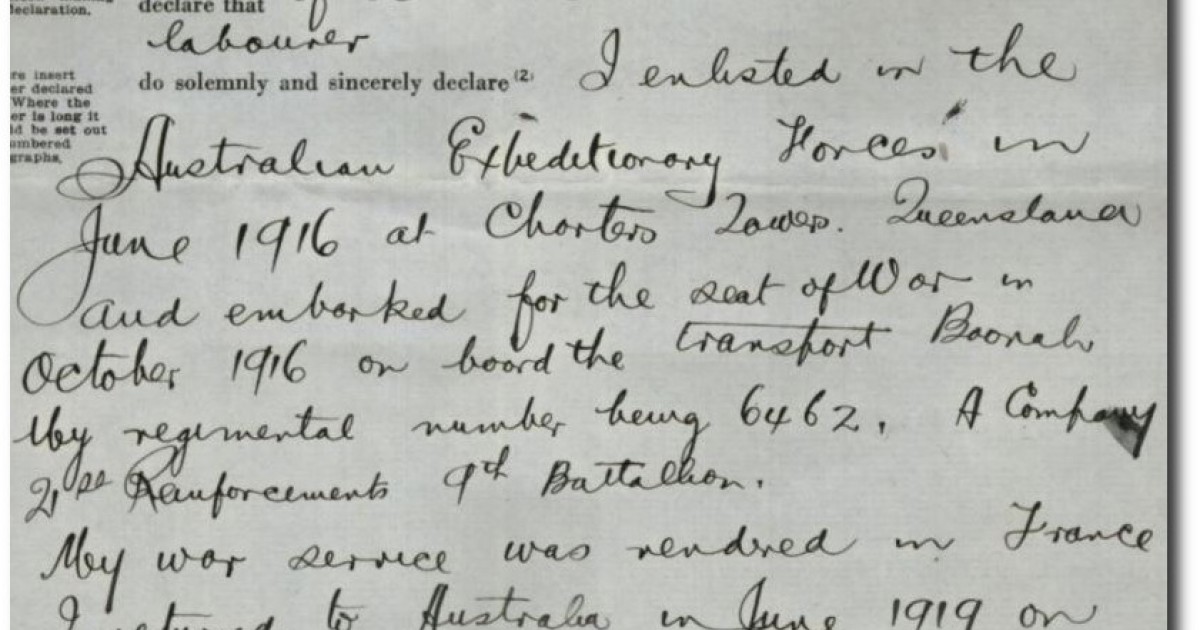 declaration.
declare that of
labourer
re insert
er declared
Where the
er is long it
d be set out
umbered
graphs,
do solemnly and sincerely declare (2) I enlisted in the
Australian Expeditionary Forces in
June 1916 at Charters Towers. Queensland
and embarked for the seat of War in
October 1916 on board the transport Boonah
My regimental number being 6462, A Company
21st Reinforcements 9th Battallion.
My war service was rendered in France
I returned to Australia in June 1919 on